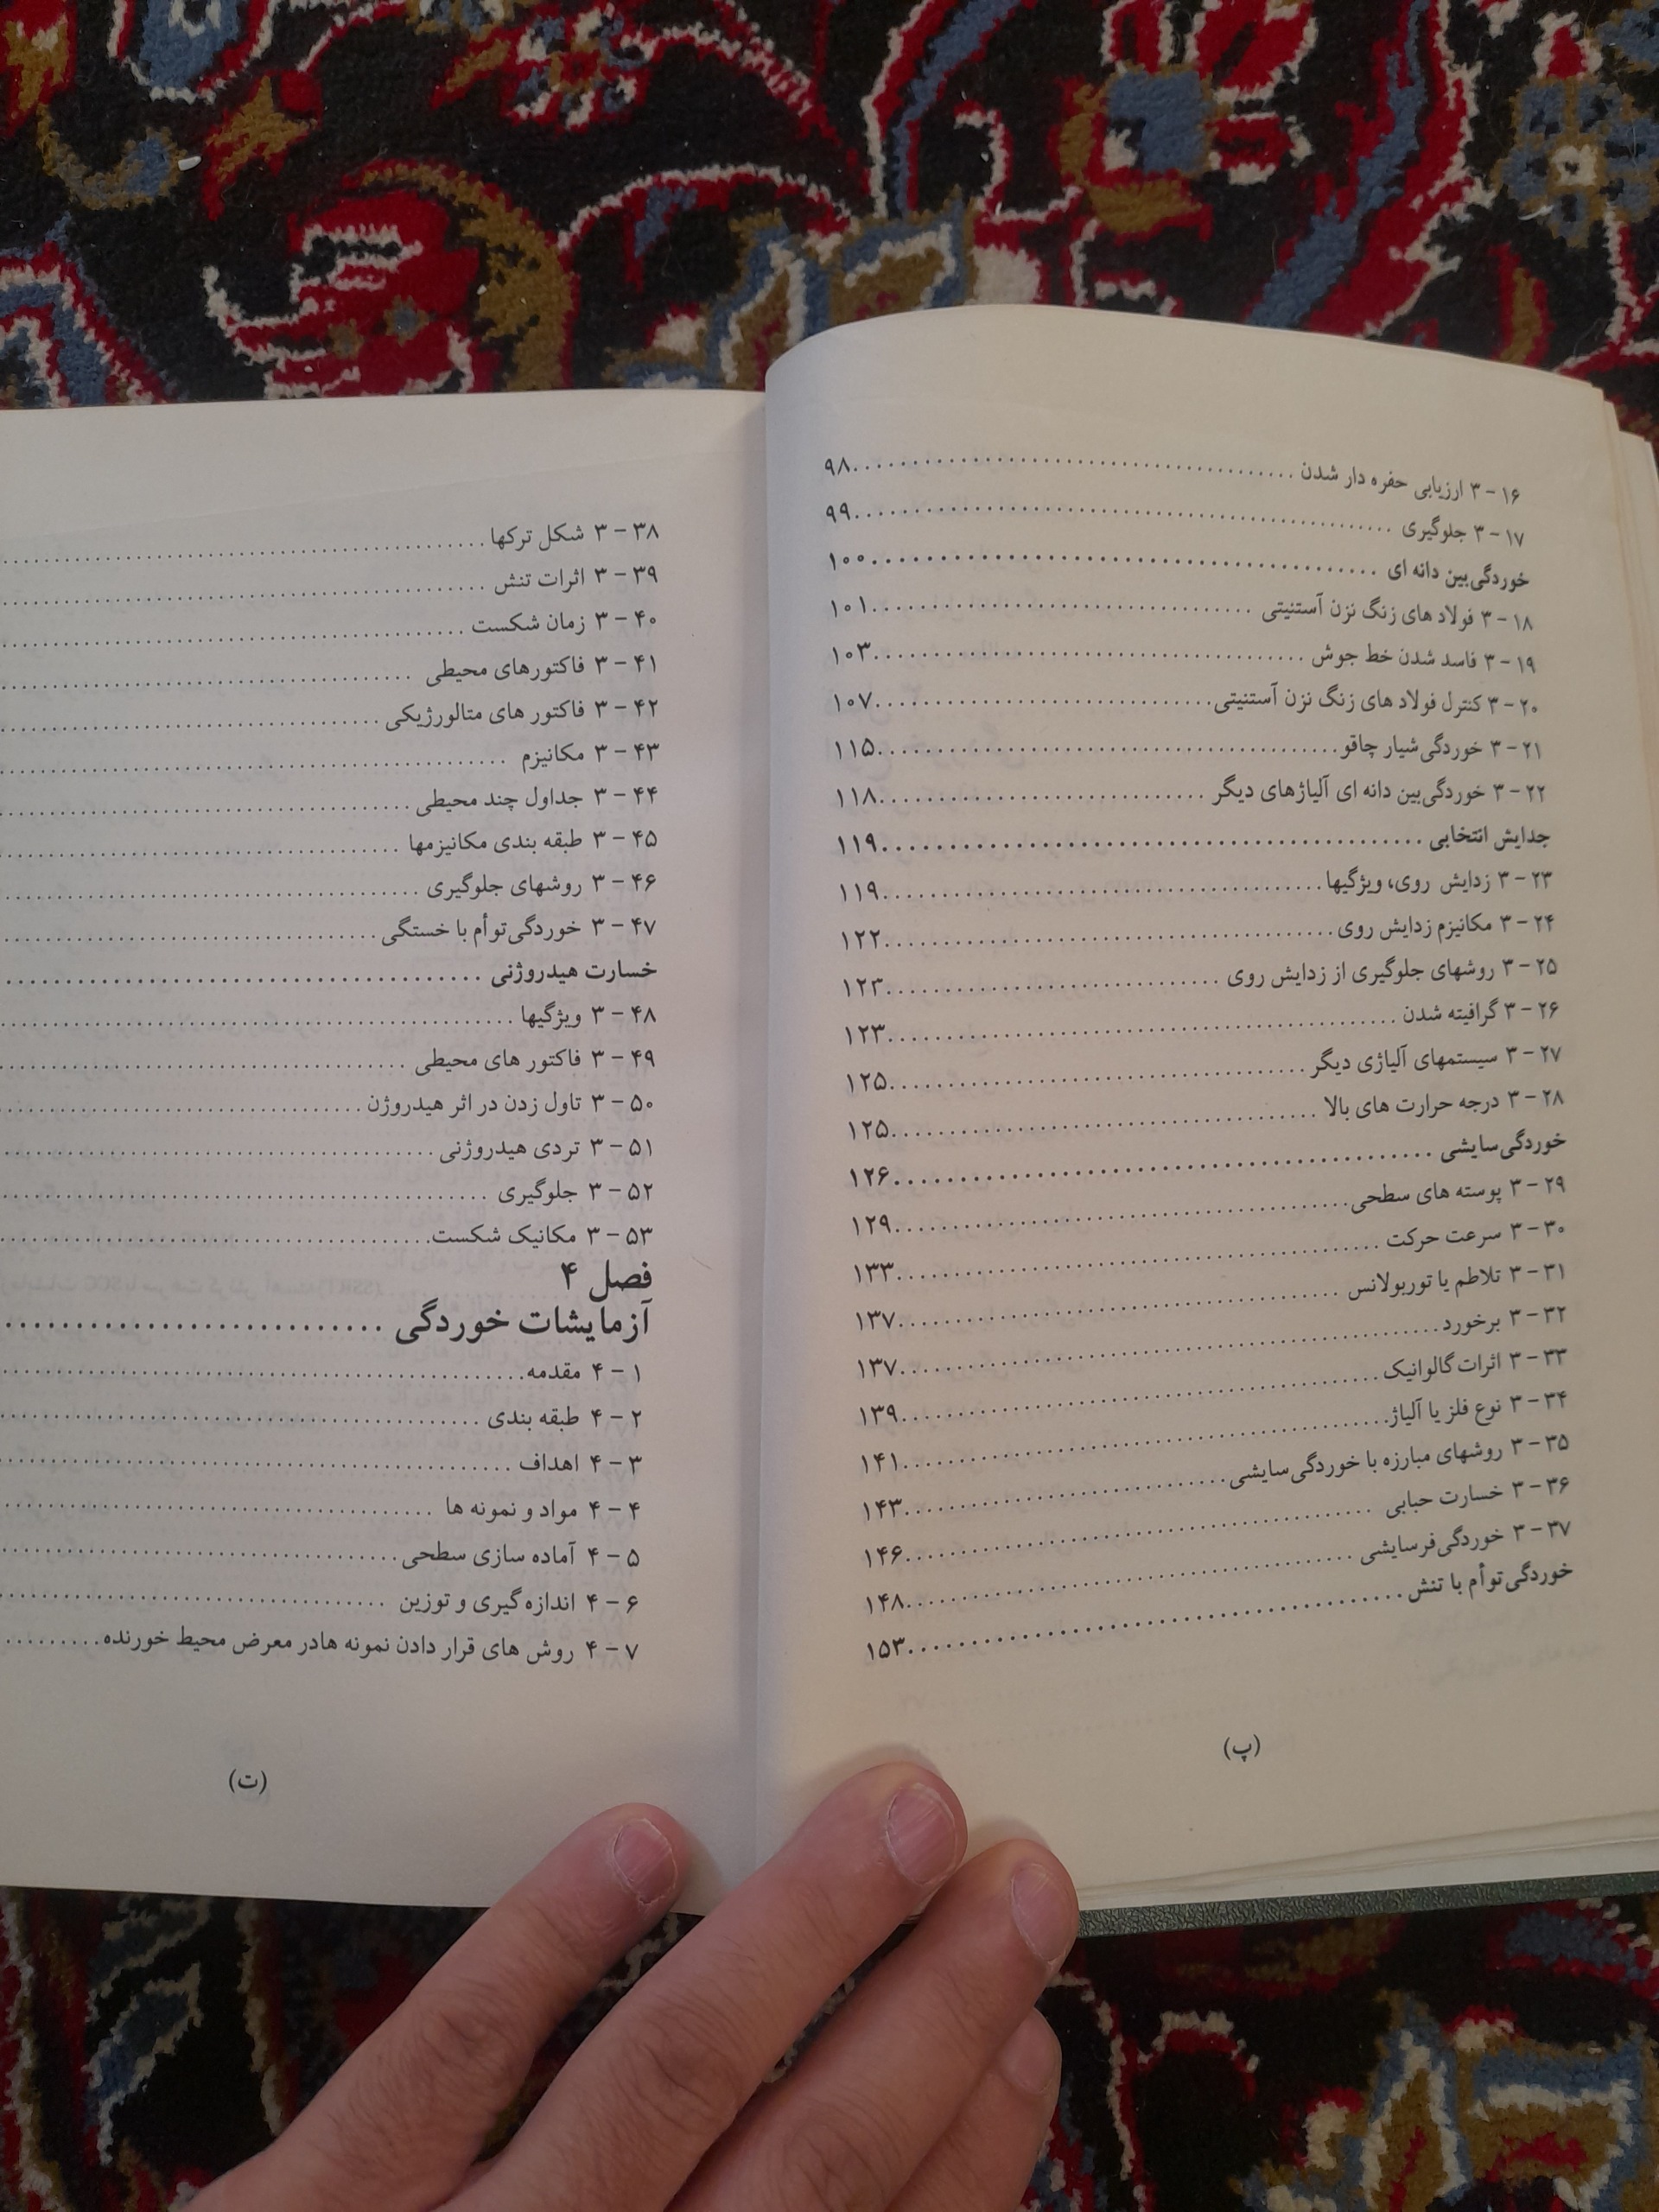 ۱۶ – ۳ ارزیابی حفره دار شدن ........ ۹۸
۱۷ – ۳ جلوگیری ........ ۹۹
خوردگی بین دانه ای ........ ۱۰۰
۱۸ – ۳ فولاد های زنگ نزن آستنیتی ........ ۱۰۱
۱۹ – ۳ فاسد شدن خط جوش ........ ۱۰۳
۲۰ – ۳ کنترل فولاد های زنگ نزن آستنیتی ........ ۱۰۷
۲۱ – ۳ خوردگی شیار چاقو ........ ۱۱۵
۲۲ – ۳ خوردگی بین دانه ای آلیاژهای دیگر ........ ۱۱۸
جدایش انتخابی ........ ۱۱۹
۲۳ – ۳ زدایش روی، ویژگیها ........ ۱۱۹
۲۴ – ۳ مکانیزم زدایش روی ........ ۱۲۲
۲۵ – ۳ روشهای جلوگیری از زدایش روی ........ ۱۲۳
۲۶ – ۳ گرافیته شدن ........ ۱۲۳
۲۷ – ۳ سیستمهای آلیاژی دیگر ........ ۱۲۵
۲۸ – ۳ درجه حرارت های بالا ........ ۱۲۵
خوردگی سایشی ........ ۱۲۶
۲۹ – ۳ پوسته های سطحی ........ ۱۲۹
۳۰ – ۳ سرعت حرکت ........ ۱۳۳
۳۱ – ۳ تلاطم یا توربولانس ........ ۱۳۷
۳۲ – ۳ برخورد ........ ۱۳۷
۳۳ – ۳ اثرات گالوانیک ........ ۱۳۹
۳۴ – ۳ نوع فلز یا آلیاژ ........ ۱۴۱
۳۵ – ۳ روشهای مبارزه با خوردگی سایشی ........ ۱۴۳
۳۶ – ۳ خسارت حبابی ........ ۱۴۶
۳۷ – ۳ خوردگی فرسایشی ........ ۱۴۸
خوردگی توأم با تنش ........ ۱۵۳
(پ)
۳۸ – ۳ شکل ترکها ........
۳۹ – ۳ اثرات تنش ........
۴۰ – ۳ زمان شکست ........
۴۱ – ۳ فاکتورهای محیطی ........
۴۲ – ۳ فاکتور های متالورژیکی ........
۴۳ – ۳ مکانیزم ........
۴۴ – ۳ جداول چند محیطی ........
۴۵ – ۳ طبقه بندی مکانیزمها ........
۴۶ – ۳ روشهای جلوگیری ........
۴۷ – ۳ خوردگی توأم با خستگی ........
خسارت هیدروژنی ........
۴۸ – ۳ ویژگیها ........
۴۹ – ۳ فاکتور های محیطی ........
۵۰ – ۳ تاول زدن در اثر هیدروژن ........
۵۱ – ۳ تردی هیدروژنی ........
۵۲ – ۳ جلوگیری ........
۵۳ – ۳ مکانیک شکست ........
فصل ۴
آزمایشات خوردگی ........
۱ – ۴ مقدمه ........
۲ – ۴ طبقه بندی ........
۳ – ۴ اهداف ........
۴ – ۴ مواد و نمونه ها ........
۵ – ۴ آماده سازی سطحی ........
۶ – ۴ اندازه گیری و توزین ........
۷ – ۴ روش های قرار دادن نمونه هادر معرض محیط خورنده ........
(ت)